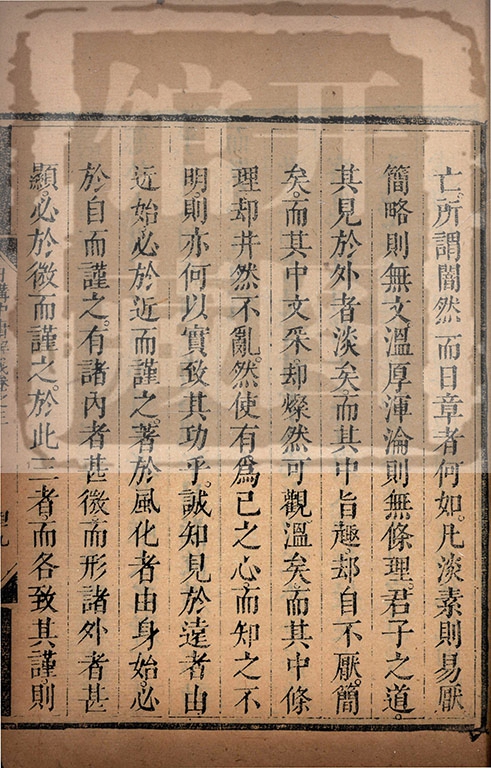 亡。所謂闇然而日章者何如。凡淡素則易厭。
簡略則無文。溫厚渾淪則無條理。君子之道。
其見於外者淡矣。而其中旨趣。却自不厭。簡
矣。而其中文采。却燦然可觀。溫矣。而其中條
理却井然不亂。然使有爲己之心。而知之不
明。則亦何以實致其功乎。誠知見於遠者由
近始。必於近而謹之。著於風化者由身始。必
於自而謹之。有諸內者甚微。而形諸外者甚
顯。必於微而謹之。於此三者。而各致其謹。則